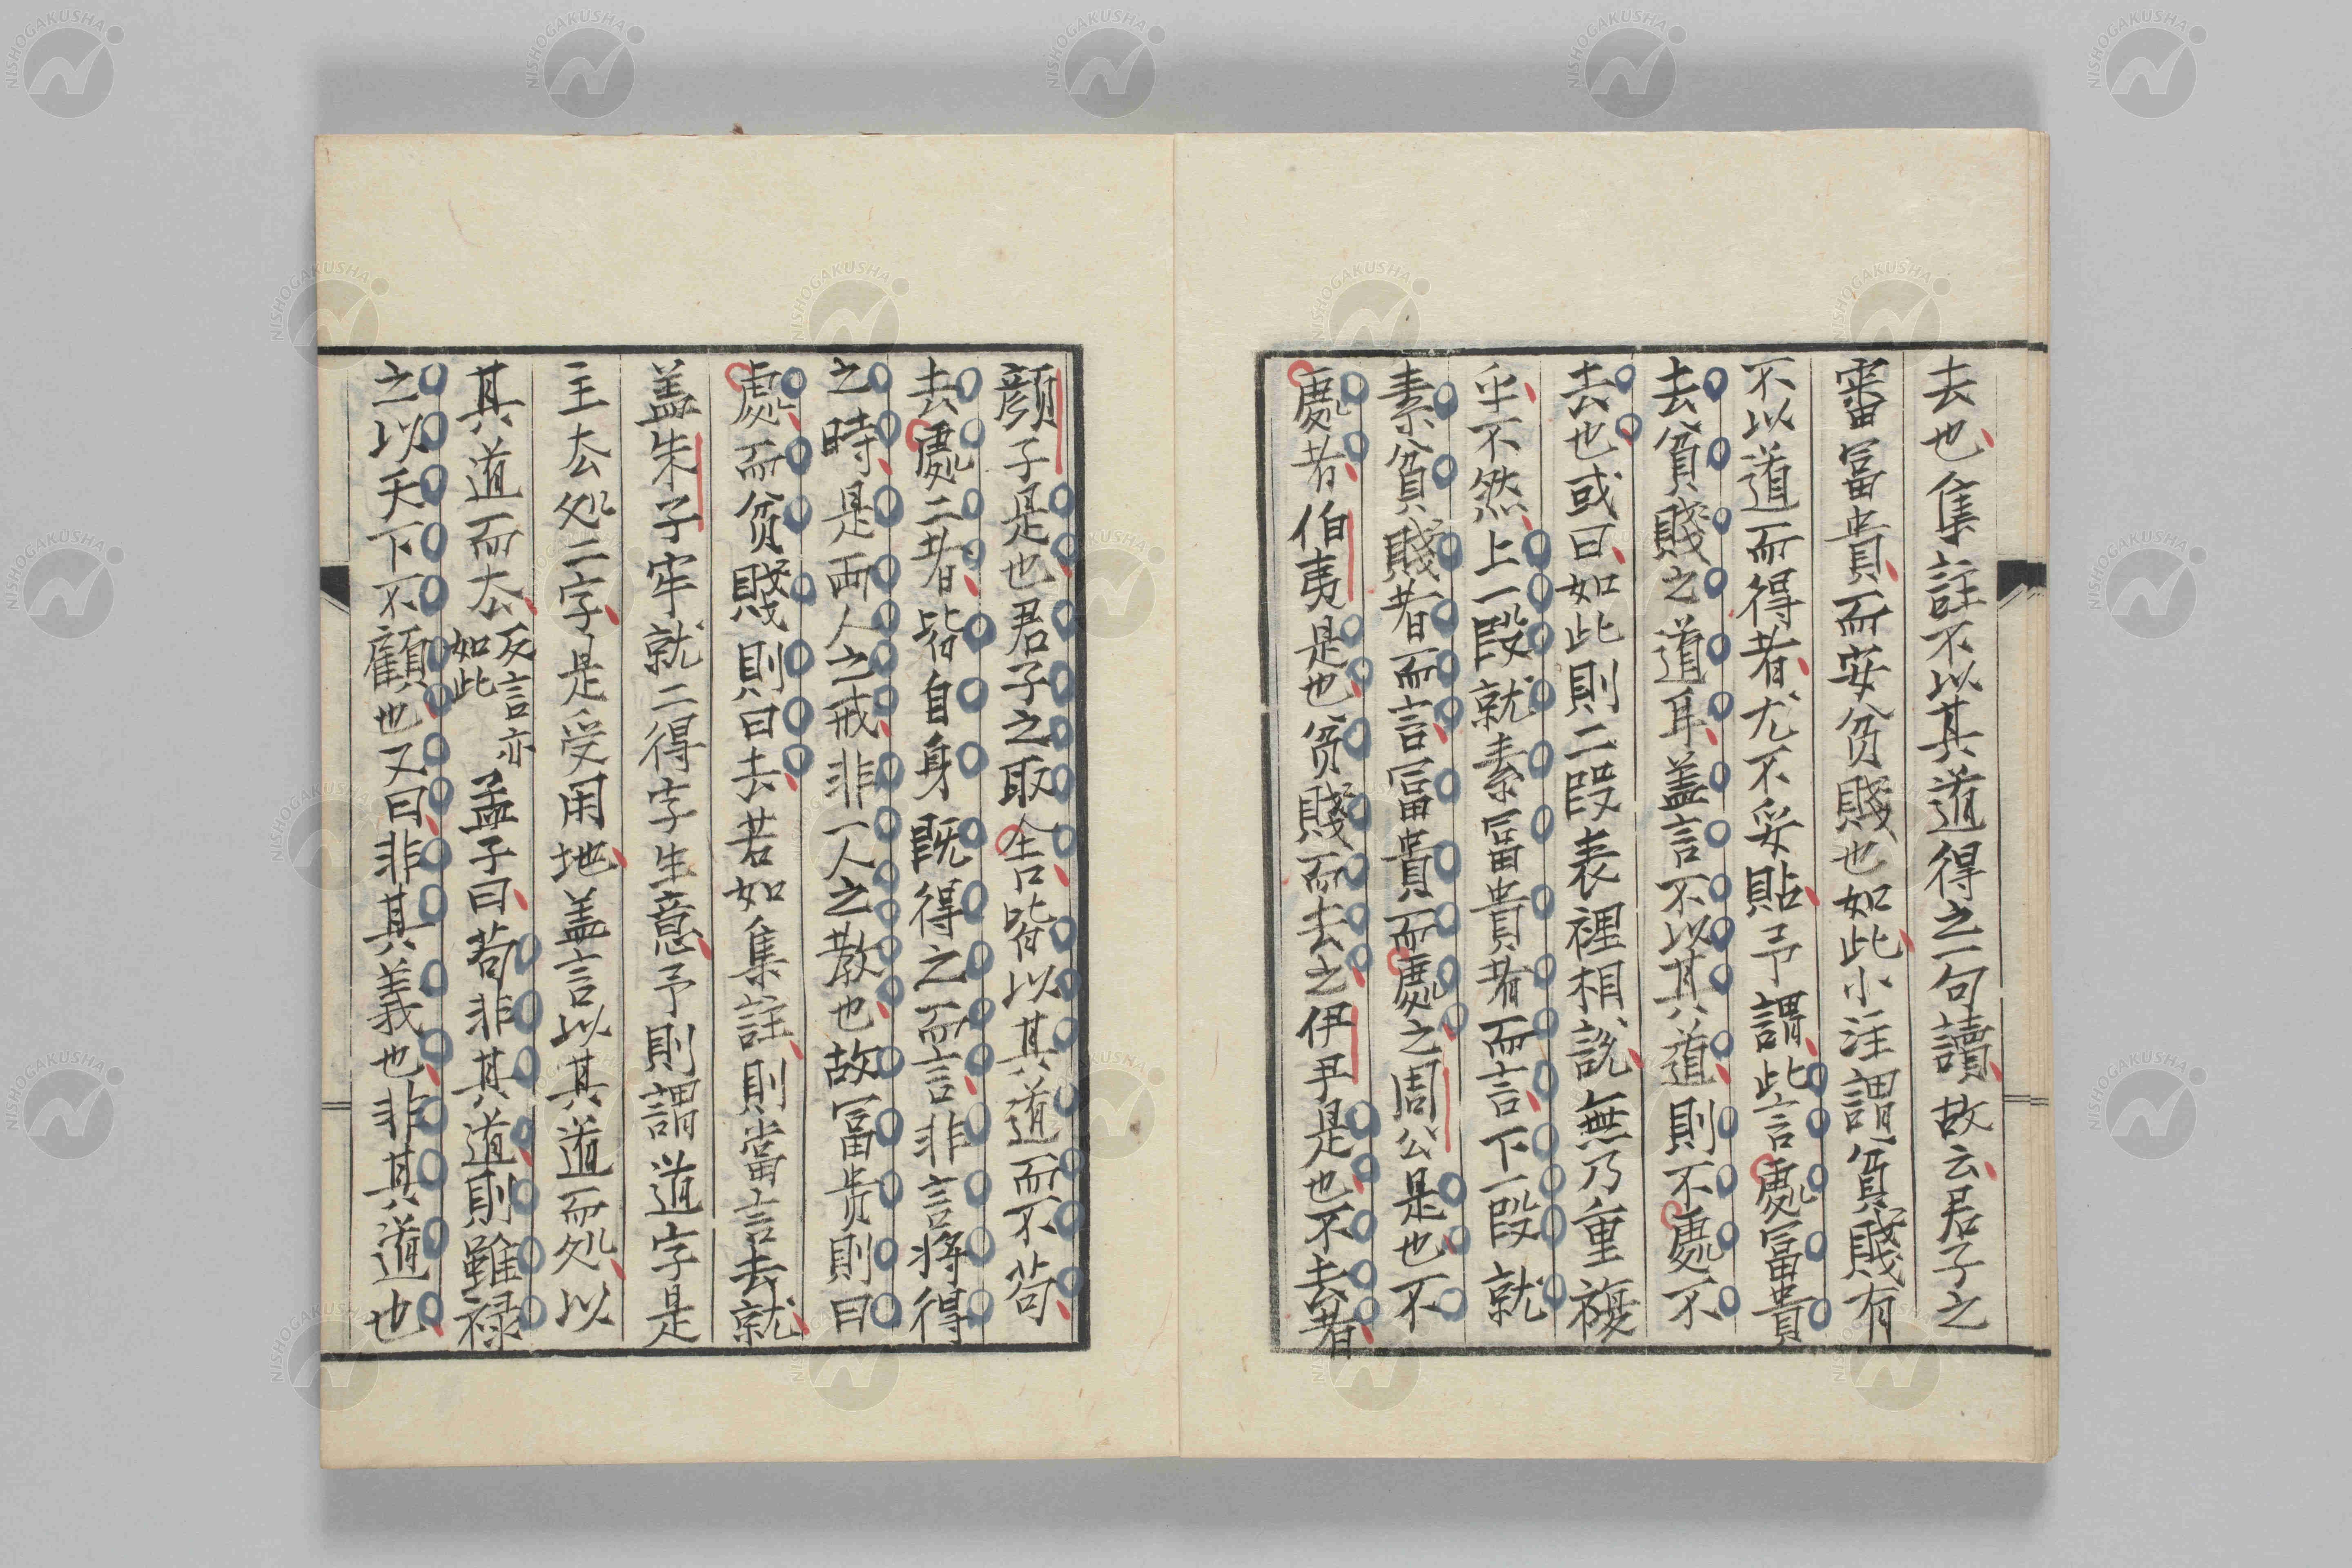 去也集註不以其道得之一句讀故云君子之
審冨貴而安貧賤也如此小注謂貧賤有
不以道而得者尤不妥貼予謂此言處冨貴
去貧賤之道耳盖言不以其道則不處不
去也或曰如此則二段表裡相說無乃重複
乎不然上一段就素冨貴者而言下一段就
素貧賤者而言冨貴而處之周公是也不
處者伯夷是也貧賤而去之伊尹是也不去者
顔子是也君子之取舎皆以其道而不苟
去處二者皆自身既得之而言非言将得
之時是両人之戒非一人之教也故冨貴則曰
處而貧賤則曰去若如集註則當言去就
盖朱子牢就二得字生意予則謂道字是
主厺処二字是受用地盖言以其道而処以
其道而厺反言亦如此孟子曰苟非其道則雖禄
之以天下不顧也又曰非其義也非其道也
NISHOGAKUSHA